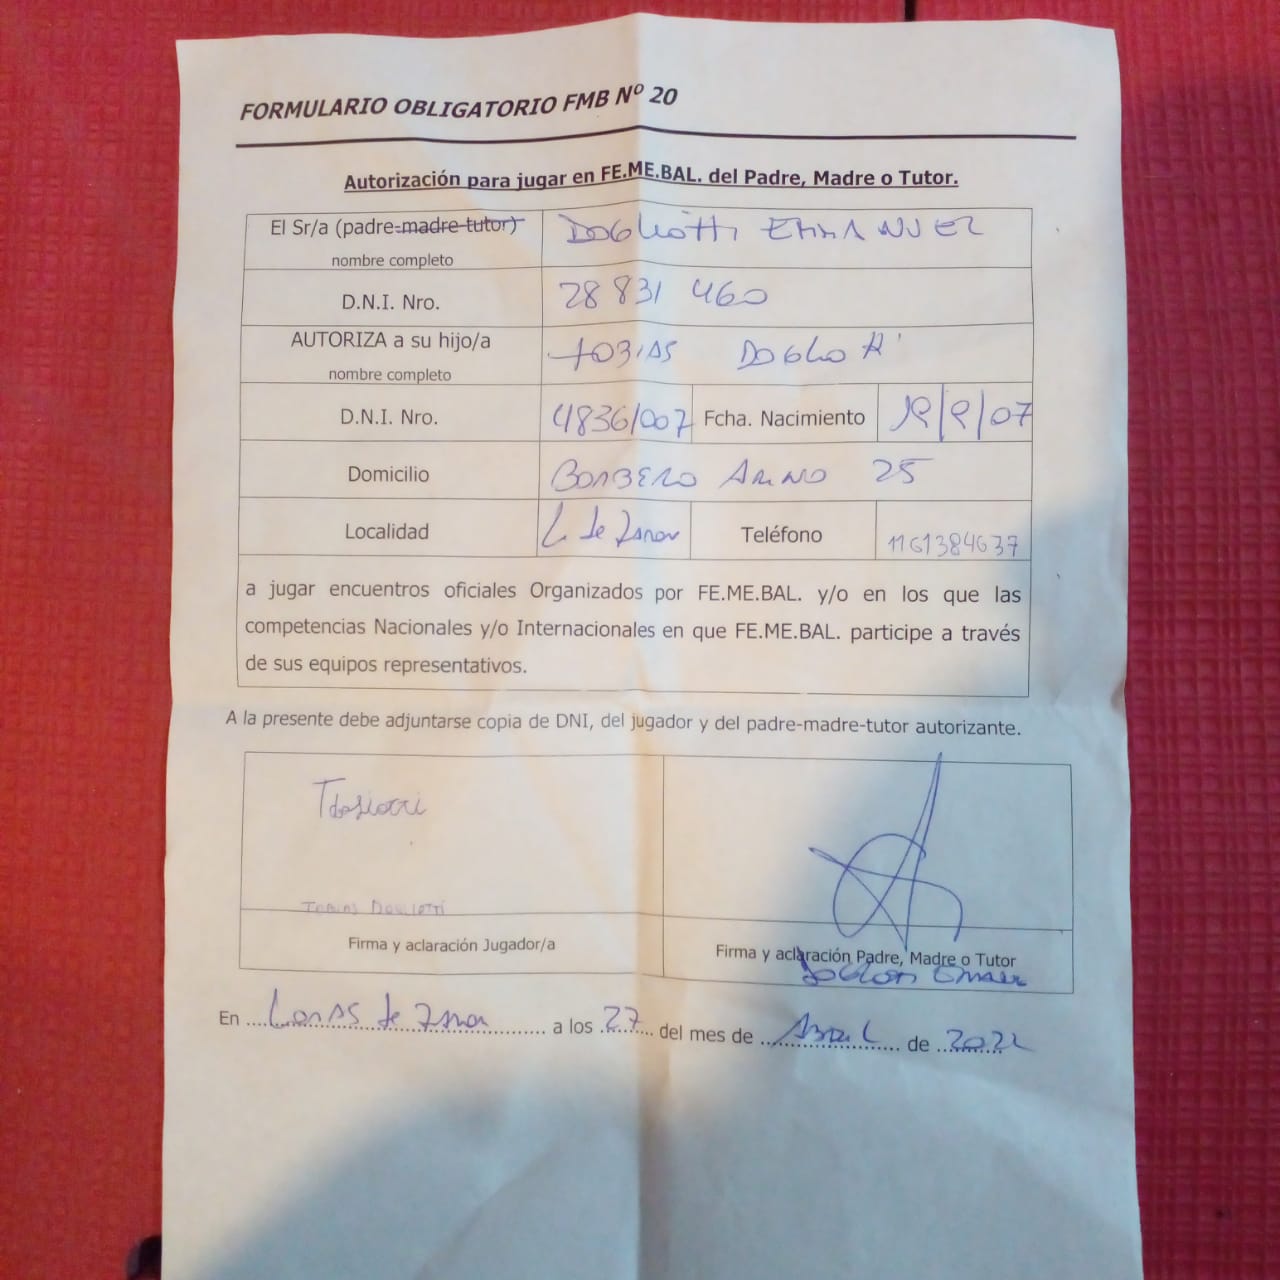 FORMULARIO OBLIGATORIO FMB Nº 20
Autorización para jugar en FE.ME.BAL. del Padre, Madre o Tutor.
El Sr/a (padre-madre-tutor) DOGLIOTTI EMMANUEL
nombre completo
D.N.I. Nro. 28 831 460
AUTORIZA a su hijo/a TOBIAS
nombre completo
D.N.I. Nro. 48361007 Fcha. Nacimiento /07
Domicilio 25
Localidad L de Zamora Teléfono 1161384637
a jugar encuentros oficiales Organizados por FE.ME.BAL. y/o en los que las
competencias Nacionales y/o Internacionales en que FE.ME.BAL. participe a través
de sus equipos representativos.
A la presente debe adjuntarse copia de DNI, del jugador y del padre-madre-tutor autorizante.
TDogliotti
TOBIAS DOGLIOTTI
Firma y aclaración Jugador/a
Firma y aclaración Padre, Madre o Tutor
En Lomas de Zamora a los 27 del mes de Abril de